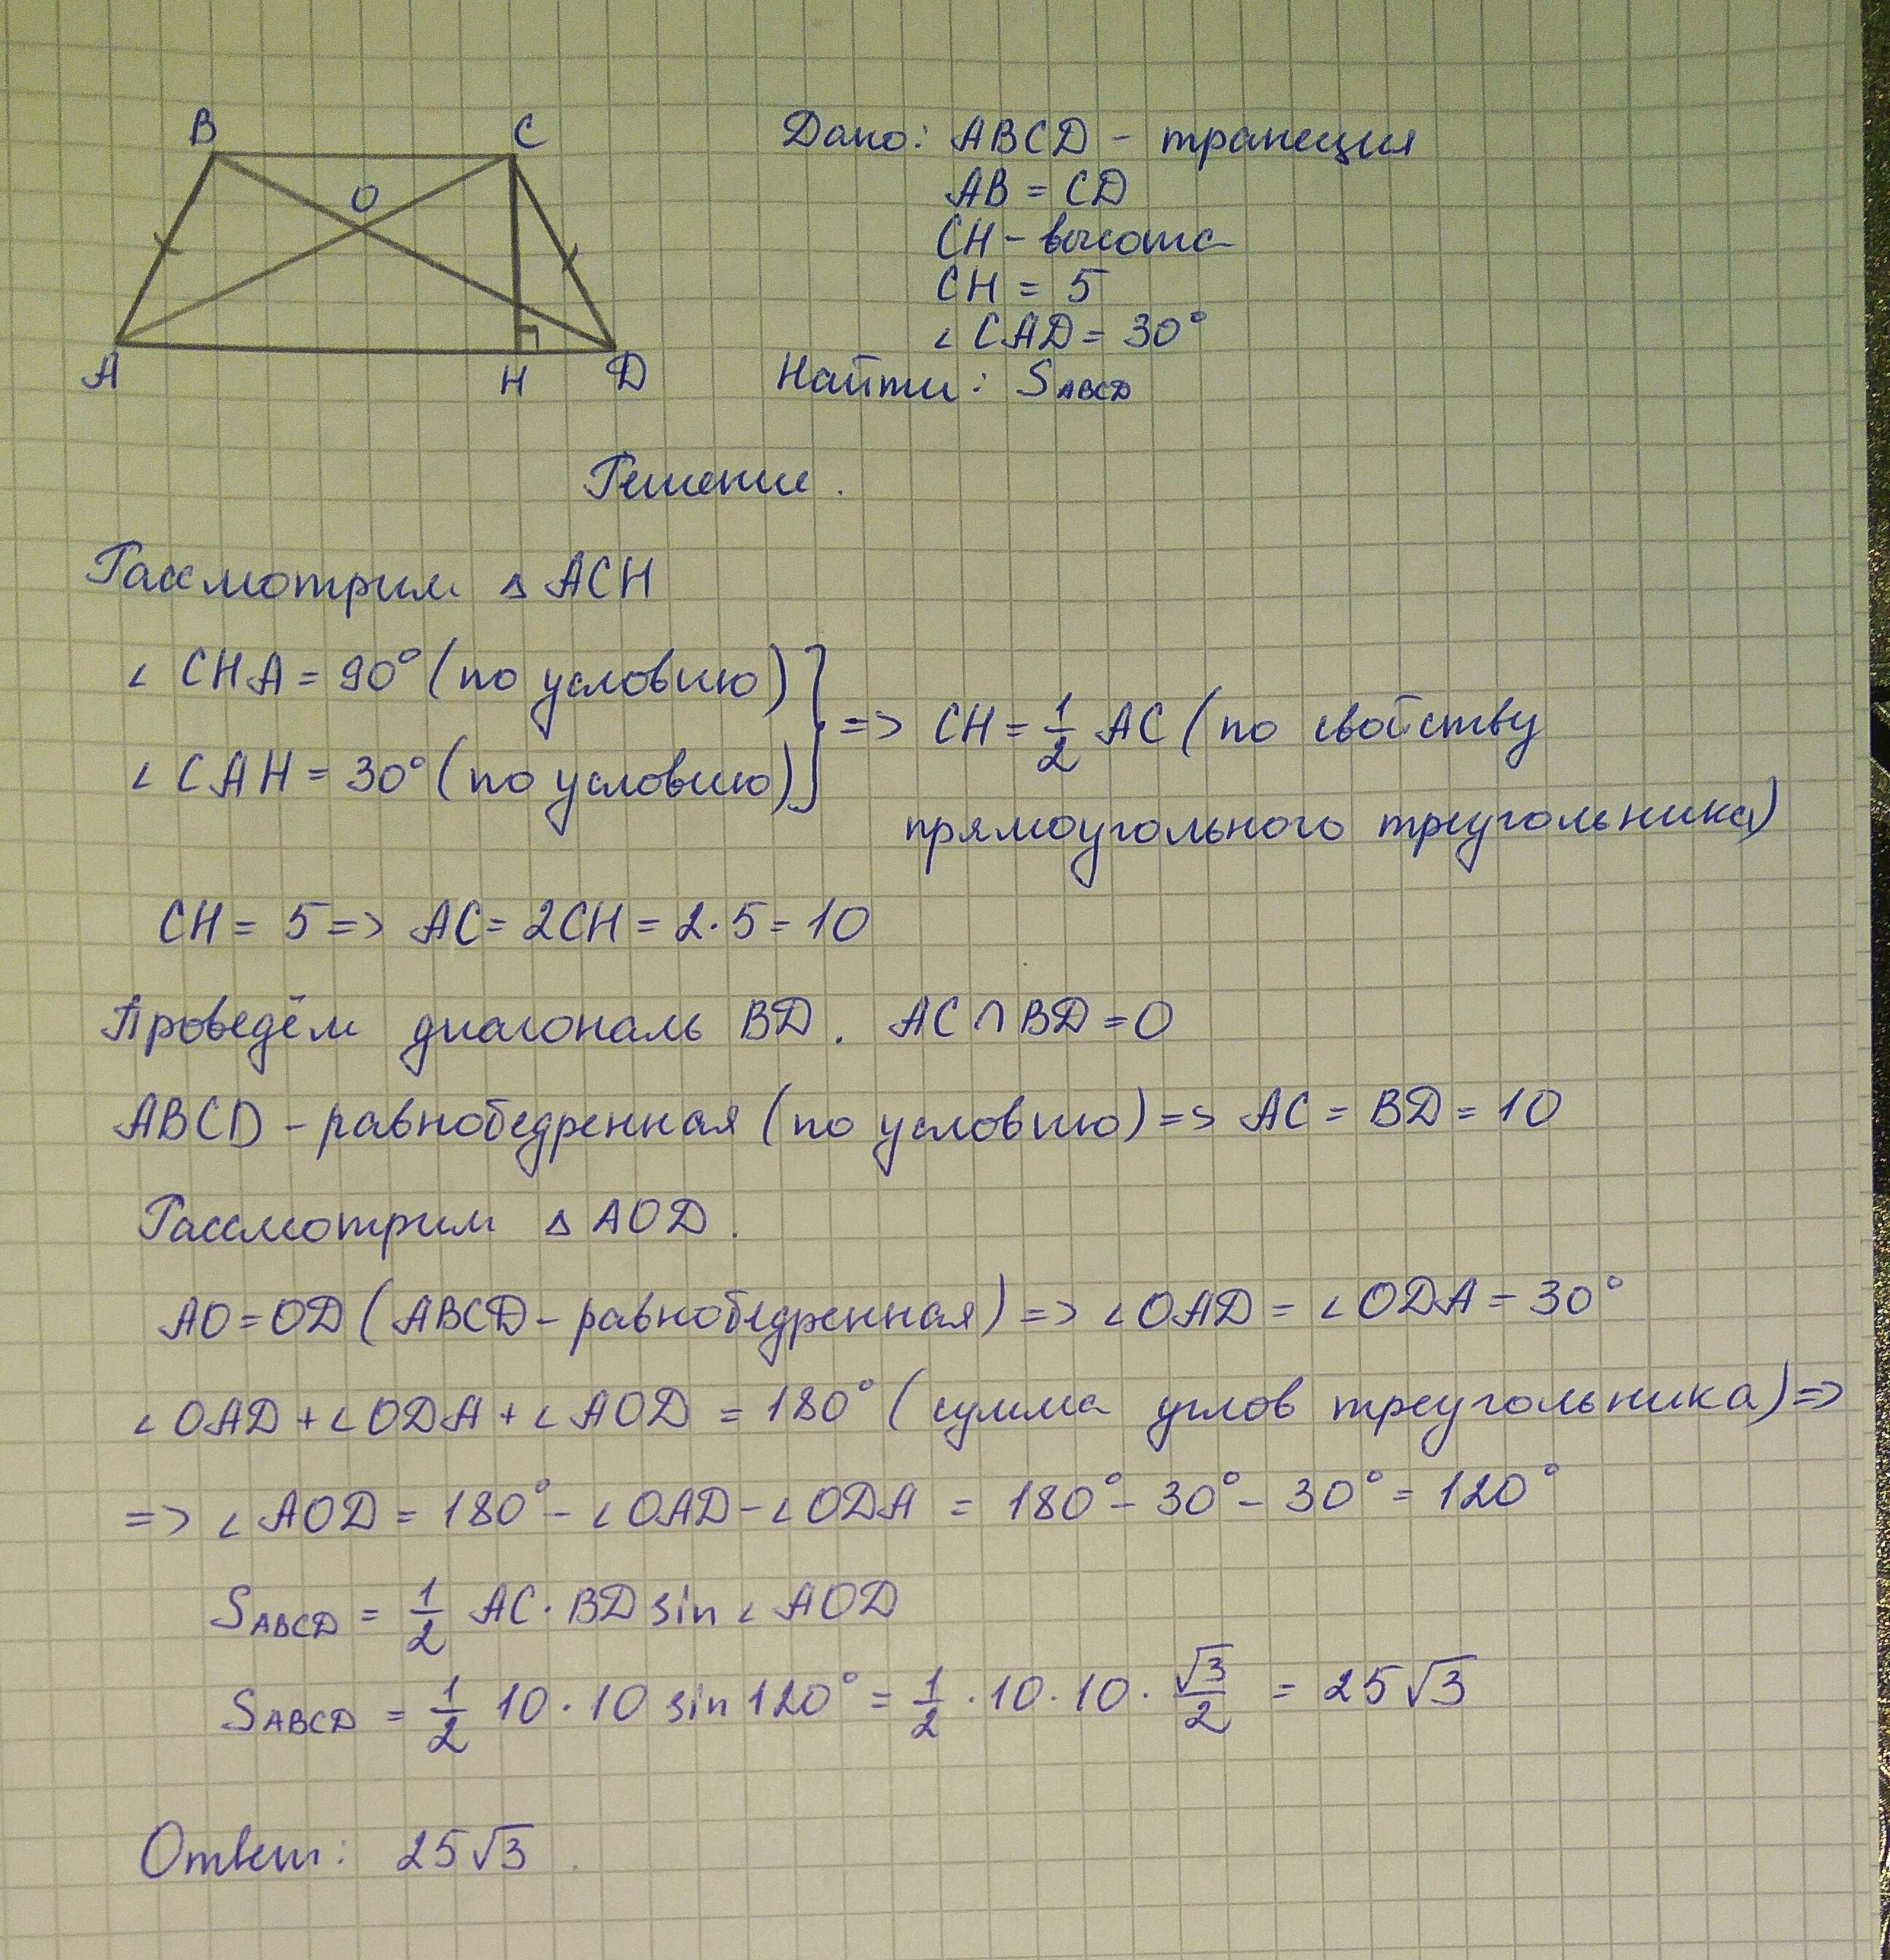 B C
O
A H D
Дано: ABCD - трапеция
AB = CD
CH - высота
CH = 5
∠ CAD = 30°
Найти: S ABCD
Решение.
Рассмотрим △ ACH
∠ CHA = 90° (по условию)
∠ CAH = 30° (по условию)
} => CH = 1/2 AC (по свойству
прямоугольного треугольника)
CH = 5 => AC = 2CH = 2·5 = 10
Проведём диагональ BD. AC ∩ BD = O
ABCD - равнобедренная (по условию) => AC = BD = 10
Рассмотрим △ AOD.
AO = OD (ABCD - равнобедренная) => ∠OAD = ∠ODA = 30°
∠OAD + ∠ODA + ∠AOD = 180° (сумма углов треугольника) =>
=> ∠AOD = 180° - ∠OAD - ∠ODA = 180° - 30° - 30° = 120°
S ABCD = 1/2 AC · BD sin ∠ AOD
S ABCD = 1/2 10 · 10 sin 120° = 1/2 · 10 · 10 · √3/2 = 25√3
Ответ: 25√3.